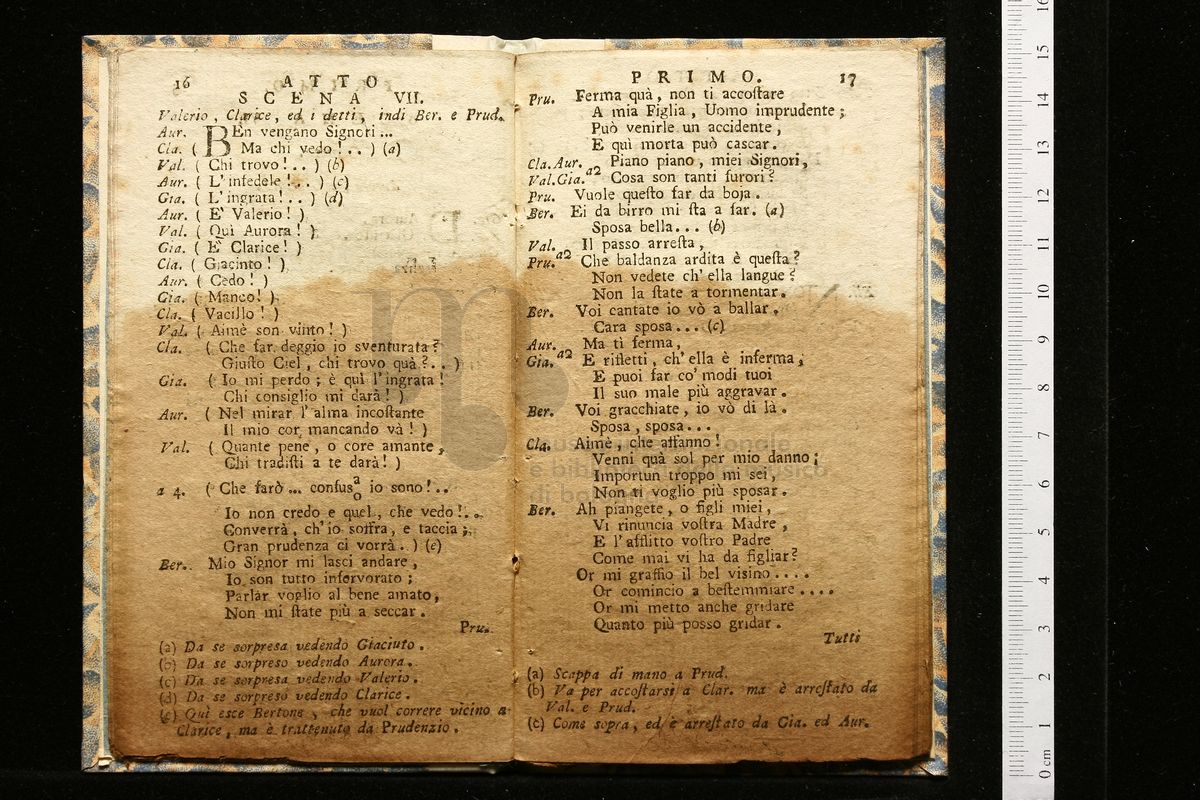 16 ATTO
SCENA VII.
Valerio, Clarice, ed i detti, indi Ber. e Prud.
Aur. BEn vengano Signori ...
Cla. ( Ma chi vedo! . . ) (a)
Val. ( Chi trovo! . . ) (b)
Aur. ( L' infedele! . . ) (c)
Gia. ( L' ingrata! . . ) (d)
Aur. ( E' Valerio! )
Val. ( Qui Aurora! )
Gia. ( E' Clarice! )
Cla. ( Giacinto! )
Aur. ( Cedo! )
Gia. ( Manco! )
Cla. ( Vacillo! )
Val. ( Aimè son vinto! )
Cla. ( Che far deggio io sventurata?
Giuſto Ciel, chi trovo quà? . . )
Gia. ( Io mi perdo; è quì l'ingrata!
Chi consiglio mi darà! )
Aur. ( Nel mirar l'alma incoſtante
Il mio cor mancando và! )
Val. ( Quante pene, o core amante,
Chi tradiſti a te darà! )
a 4. ( Che farò ... confus a/o io sono! . .
Io non credo e quel, che vedo! . .
Converrà, ch'io soffra, e taccia;
Gran prudenza ci vorrà. ) (e)
Ber. Mio Signor mi lasci andare,
Io son tutto infervorato;
Parlar voglio al bene amato,
Non mi ſtate più a seccar.
Pru.
(a) Da se sorpresa vedendo Giacinto.
(b) Da se sorpreso vedendo Aurora.
(c) Da se sorpresa vedendo Valerio.
(d) Da se sorpreso vedendo Clarice.
(e) Quì esce Bertone, che vuol correre vicino a
Clarice, ma è trattenuto da Prudenzio.
PRIMO. 17
Pru. Ferma quà, non ti accoſtare
A mia Figlia, Uomo imprudente;
Può venirle un accidente,
E quì morta può cascar.
Cla. Aur. Piano piano, miei Signori,
Val. Gia. a2 Cosa son tanti furori?
Pru. Vuole queſto far da boja.
Ber. Ei da birro mi ſta a far. (a)
Sposa bella... (b)
Val. Il passo arreſta,
Pru. a2 Che baldanza ardita è queſta?
Non vedete ch' ella langue?
Non la ſtate a tormentar.
Ber. Voi cantate io vò a ballar.
Cara sposa... (c)
Aur. Ma ti ferma,
Gia. a2 E rifletti, ch' ella è inferma,
E puoi far co' modi tuoi
Il suo male più aggravar.
Ber. Voi gracchiate, io vò di là.
Sposa, sposa...
Cla. Aimè, che affanno!
Venni quà sol per mio danno;
Importun troppo mi sei,
Non ti voglio più sposar.
Ber. Ah piangete, o figli miei,
Vi rinuncia voſtra Madre,
E l'afflitto voſtro Padre
Come mai vi ha da figliar?
Or mi graffio il bel visino....
Or comincio a beſtemmiare....
Or mi metto anche gridare
Quanto più posso gridar.
Tutti
(a) Scappa di mano a Prud.
(b) Va per accoſtarsi a Clar. ma è arreſtato da
Val. e Prud.
(c) Come sopra, ed è arreſtato da Gia. ed Aur.
0 cm 1 2 3 4 5 6 7 8 9 10 11 12 13 14 15 16